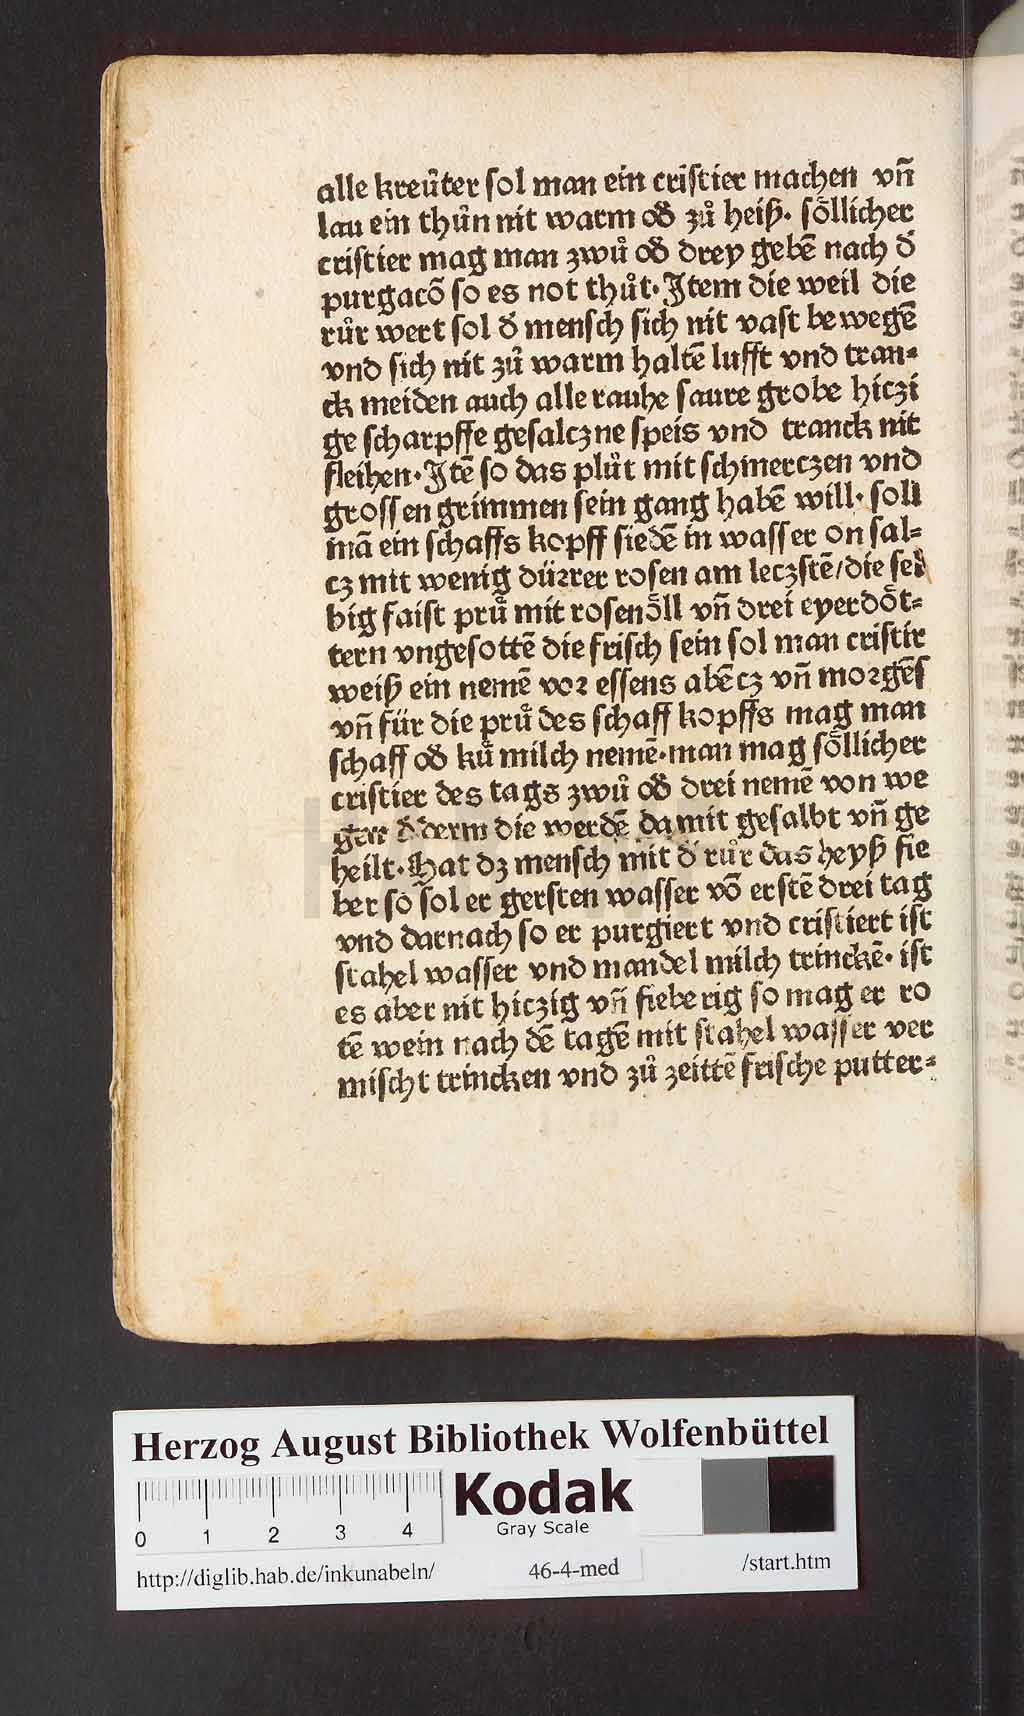 alle kreuͤter sol man ein cristier machen vn̄
lau ein thuͦn nit warm od̕ zuͦ heiß· soͤllicher
cristier mag man zwuͦ od̕ drey gebē nach d̕
purgacō so es not thuͦt· Item die weil die
ruͦr wert sol d̕ mensch sich nit vast bewegē
vnd sich nit zuͦ warm haltē lufft vnd tran⸗
ck meiden auch alle rauhe saure grobe hiczi
ge scharpffe gesalczne speis vnd tranck nit
fleihen· Itē so das pluͦt mit schmerczen vnd
grossen grimmen sein gang habē will· soll
mā ein schaffs kopff siedē in wasser on sal⸗
cz mit wenig düꝛrer rosen am leczstē/ die sel
big faist pruͤ mit rosenoͤll vn̄ drei eyerdoͤt⸗
tern vngesottē die frisch sein sol man cristir
weiß ein nemē voꝛ essens abēcz vn̄ moꝛgēs
vn̄ für die pruͤ des schaff kopffs mag man
schaff od̕ kuͤ milch nemē· man mag soͤllicher
cristier des tags zwuͦ od̕ drei nemē von we
gen d̕ derm die werdē da mit gesalbt vn̄ ge
heilt· Hat dz mensch mit d̕ ruͦr das heyß fie
ber so sol er gersten wasser vō erstē drei tag
vnd darnach so er purgiert vnd cristiert ist
stahel wasser vnd mandel milch trinckē· ist
es aber nit hiczig vn̄ fieberig so mag er ro
tē wein nach dē tagē mit stahel wasser ver
mischt trincken vnd zuͦ zeittē frische putter⸗
Herzog August Bibliothek Wolfenbüttel
0 1 2 3 4
Kodak
Gray Scale
http://diglib.hab.de/inkunabeln/ 46-4-med /start.htm